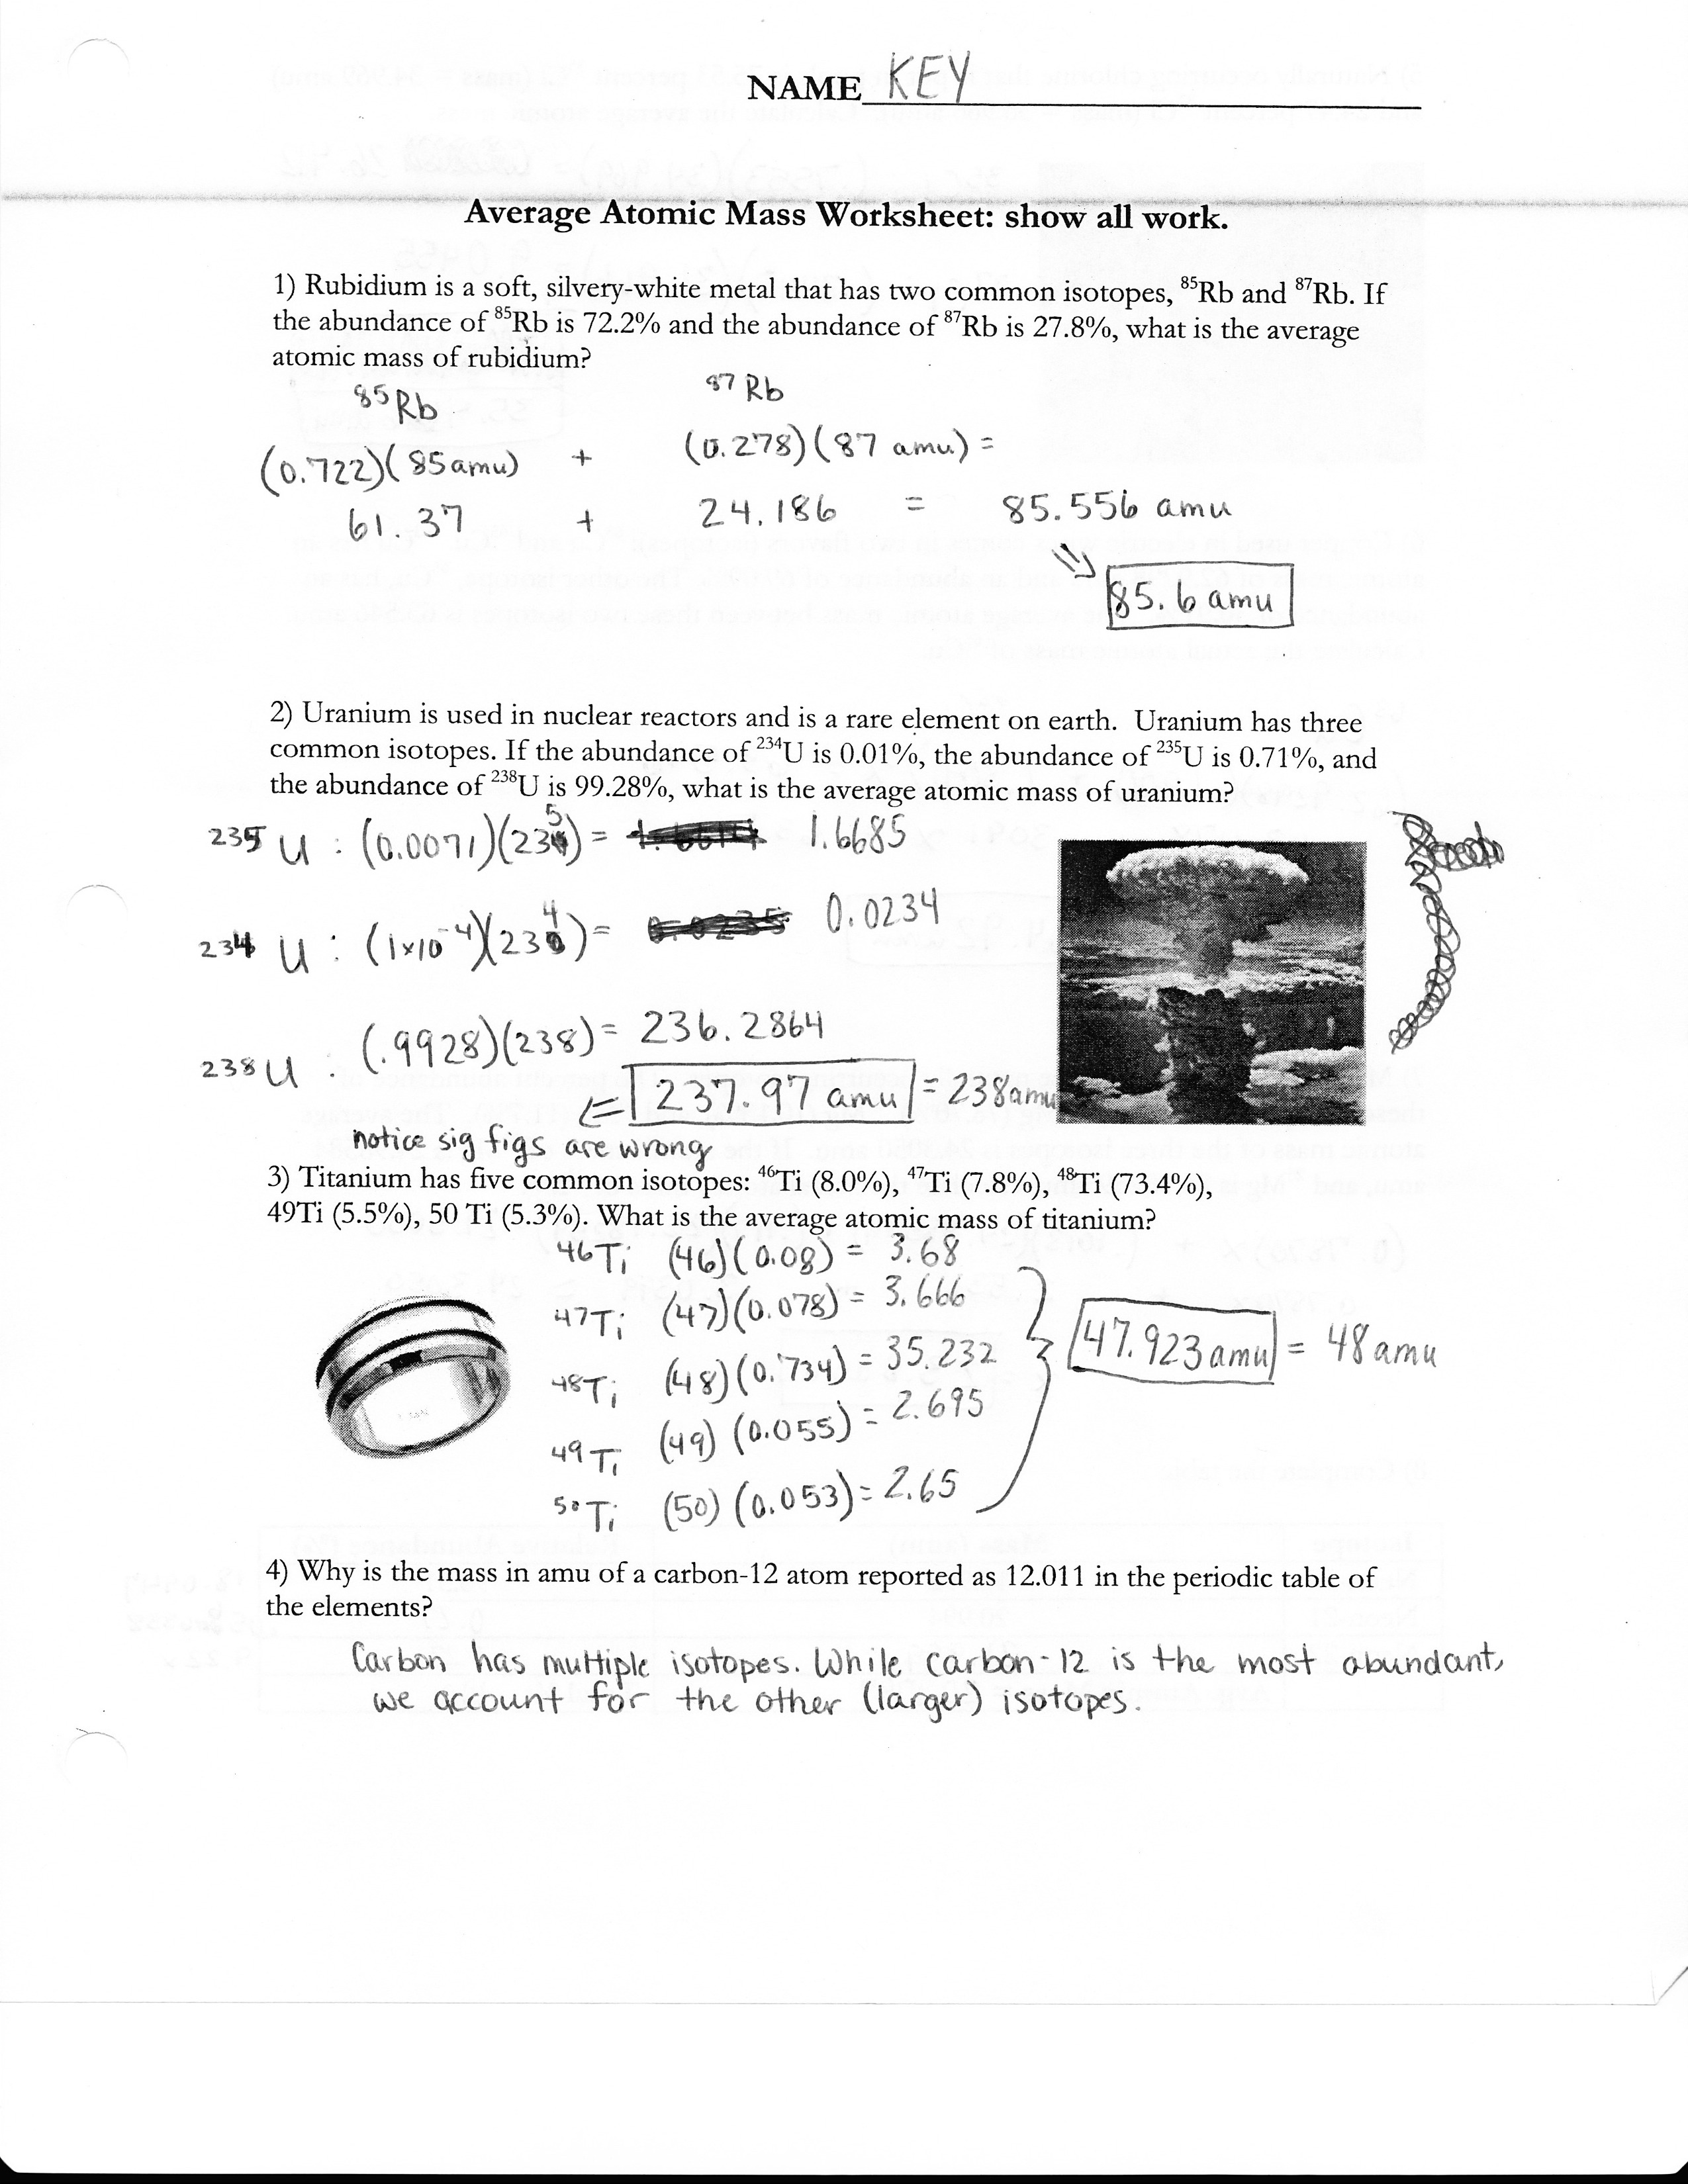 NAME KEY
Average Atomic Mass Worksheet: show all work.
1) Rubidium is a soft, silvery-white metal that has two common isotopes, ⁸⁵Rb and ⁸⁷Rb. If
the abundance of ⁸⁵Rb is 72.2% and the abundance of ⁸⁷Rb is 27.8%, what is the average
atomic mass of rubidium?
⁸⁵Rb ⁸⁷Rb
(0.722)(85amu) + (0.278)(87 amu) =
61.37 + 24.186 = 85.556 amu
85.6 amu
2) Uranium is used in nuclear reactors and is a rare element on earth. Uranium has three
common isotopes. If the abundance of ²³⁴U is 0.01%, the abundance of ²³⁵U is 0.71%, and
the abundance of ²³⁸U is 99.28%, what is the average atomic mass of uranium?
²³⁵U : (0.0071)(235) = 1.6685
²³⁴U : (1x10⁻⁴)(234) = 0.0234
²³⁸U : (.9928)(238) = 236.2864
⇐ 237.97 amu = 238amu
notice sig figs are wrong
3) Titanium has five common isotopes: ⁴⁶Ti (8.0%), ⁴⁷Ti (7.8%), ⁴⁸Ti (73.4%),
49Ti (5.5%), 50 Ti (5.3%). What is the average atomic mass of titanium?
⁴⁶Ti (46)(0.08) = 3.68
⁴⁷Ti (47)(0.078) = 3.666
⁴⁸Ti (48)(0.734) = 35.232
47.923 amu = 48 amu
⁴⁹Ti (49) (0.055) = 2.695
⁵⁰Ti (50) (0.053) = 2.65
4) Why is the mass in amu of a carbon-12 atom reported as 12.011 in the periodic table of
the elements?
Carbon has multiple isotopes. While carbon-12 is the most abundant,
we account for the other (larger) isotopes.